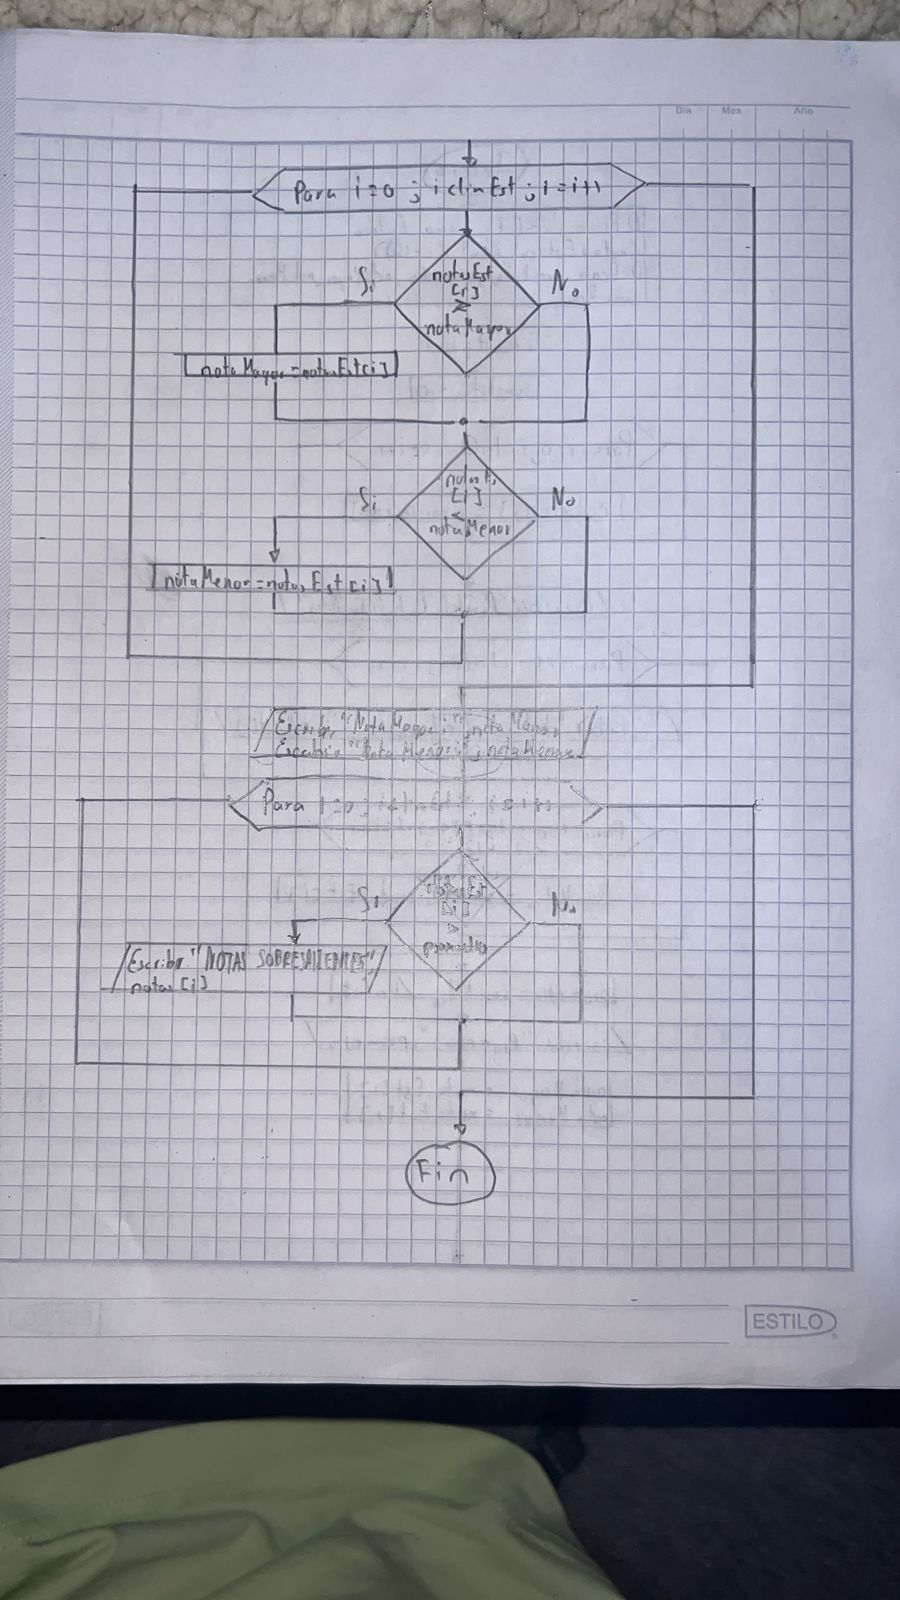 Día Mes Año
Para i=0 ; i<limEst ; i=i+1
notasEst
[i]
>
notaMayor
Si
No
notaMayor=notasEst[i]
[i]
<
notaMenor
Si
No
notaMenor=notasEst[i]
Escribir "Nota Mayor:", notaMayor
Escribir "Nota Menor:", notaMenor
Para i=0 ; i=i+1
[i]
Si
No
Escribir "NOTAS SOBRESALIENTES"
notas[i]
Fin
ESTILO